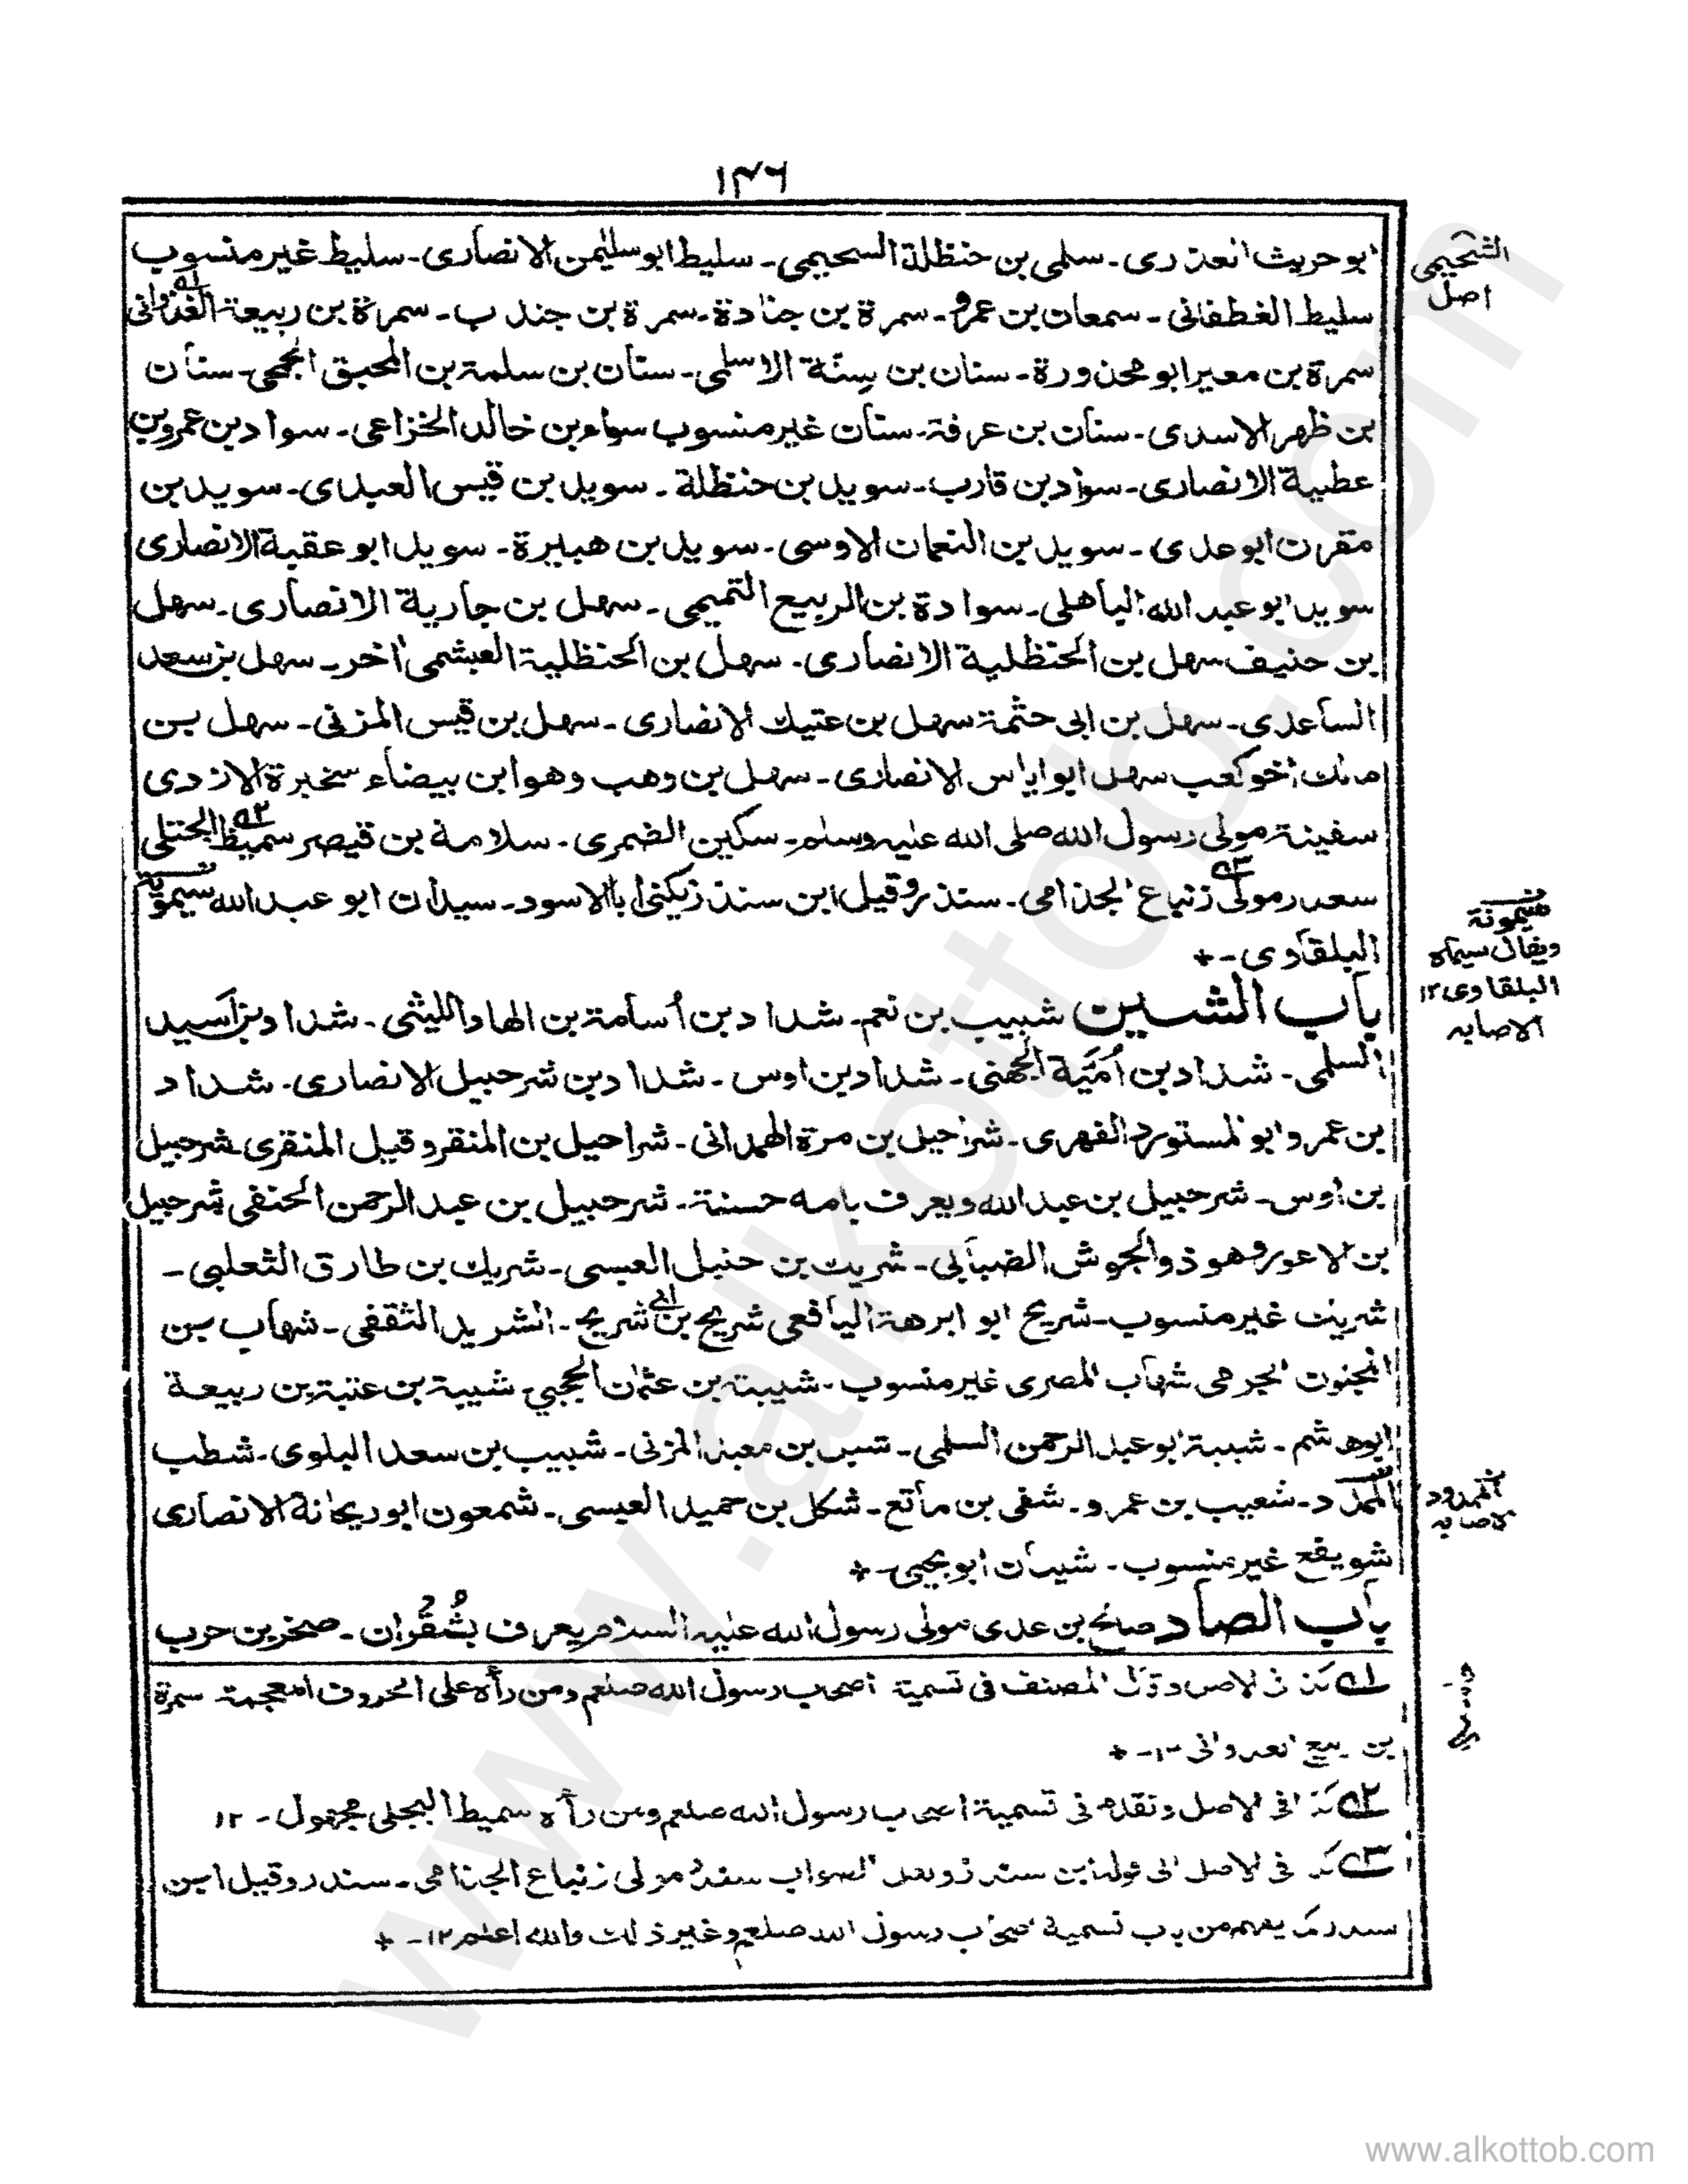 ١٤٦
ابو حريث العذرى۔ سلمى بن حنظلة السحيمى۔ سليط ابو سليمن الانصارى۔ سليط غير منسوب
سليط الغطفانى۔ سمعان بن عمرو۔ سمرة بن جنادة۔ سمرة بن جندب۔ سمرة بن ربيعة العدوانى ١ه
سمرة بن معير ابو محذورة۔ سنان بن سنة الاسلمى۔ سنان بن سلمة بن المحبق الجمحى۔ سنان
بن ظهر الاسدى۔ سنان بن عرفة۔ سنان غير منسوب سواء بن خالد الخزاعى۔ سواد بن عمرو بن
عطية الانصارى۔ سواد بن قارب۔ سويد بن حنظلة۔ سويد بن قيس العبدى۔ سويد بن
مقرن ابو عدى۔ سويد بن النعمان الاوسى۔ سويد بن هبيرة۔ سويد ابو عقبة الانصارى
سويد ابو عبد الله الباهلى۔ سوادة بن الربيع التميمى۔ سهل بن جارية الانصارى۔ سهل
بن حنيف سهل بن الحنظلية الانصارى۔ سهل بن الحنظلية العبشمى اٰخر۔ سهل بن سعد
الساعدى۔ سهل بن ابى حثمة سهل بن عتيك الانصارى۔ سهل بن قيس المزنى۔ سهل بن
مالك اخو كعب سهل ابو اياس الانصارى۔ سهل بن وهب وهو ابن بيضاء سخبرة الازدى
سفينة مولى رسول الله صلى الله عليه وسلم۔ سكين الضمرى۔ سلامة بن قيصر سميط ٢ه البجلى
سعدر مولى ٣ه زنباع الجذامى۔ سندر وقيل ابن سندر يكنى ابا الاسود۔ سيدان ابو عبد الله سيمويه
البلقاوى۔+
باب الشين شبيب بن نعم۔ شداد بن أسامة بن الهاد الليثى۔ شداد بن أسيد
السلمى۔ شداد بن أُميَّة الجهنى۔ شداد بن اوس۔ شداد بن شرحبيل الانصارى۔ شداد
بن عمرو ابو المستورد الفهرى۔ شراحيل بن مرة الهمدانى۔ شراحيل بن المنقر وقيل المنقرى شرحبيل
بن اوس۔ شرحبيل بن عبد الله ويعرف بامه حسنة۔ شرحبيل بن عبد الرحمن الحنفى شرحبيل
بن الاعور وهو ذو الجوش الضبابى۔ شريك بن حنبل العبسى۔ شريك بن طارق الثعلبى۔
شريك غير منسوب۔ شريح ابو ابرهة اليافعى شريح بن ابى شريح۔ الشريد الثقفى۔ شهاب بن
المجنون الجرمى شهاب المصرى غير منسوب۔ شيبة بن عثمان الحجبى شيبة بن عتبة بن ربيعة
ابو هاشم۔ شيبة ابو عبد الرحمن السلمى۔ بن معبد المزنى۔ شبيب بن سعد البلوى۔ شطب
الممدد۔ شعيب بن عمرو۔ شفى بن ماتع۔ شكل بن حميد العبسى۔ شمعون ابو ريحانة الانصارى
شويفع غير منسوب۔ شيبان ابو يحيى۔+
باب الصاد صالح بن عدى مولى رسول الله عليه السلام يعرف بشُقُران۔ صخر بن حرب
١ه كذا فى الاصل وقال المصنف فى تسمية اصحاب رسول الله صلعم ومن رأه على الحروف المعجمة سمرة
بن ربيع العدوانى ١٢۔+
٢ه كذا فى الاصل وتقدم فى تسمية اصحاب رسول الله صلعم ومن رأه سميط البجلى مجهول۔ ١٢
٣ه كذا فى الاصل الى قوله ابن سندر ولعل الصواب سندر مولى زنباع الجذامى۔ سندر وقيل ابن
سندر كما يفهم من باب تسمية اصحاب رسول الله صلعم وغير ذلك والله اعلم ١٢۔+
الشحيمى
اصل
سيمونة
ويقال سيماه
البلقاوى ١٢
الاصابه
الممدود
الاصابه
www.alkottob.com
www.alkottob.com